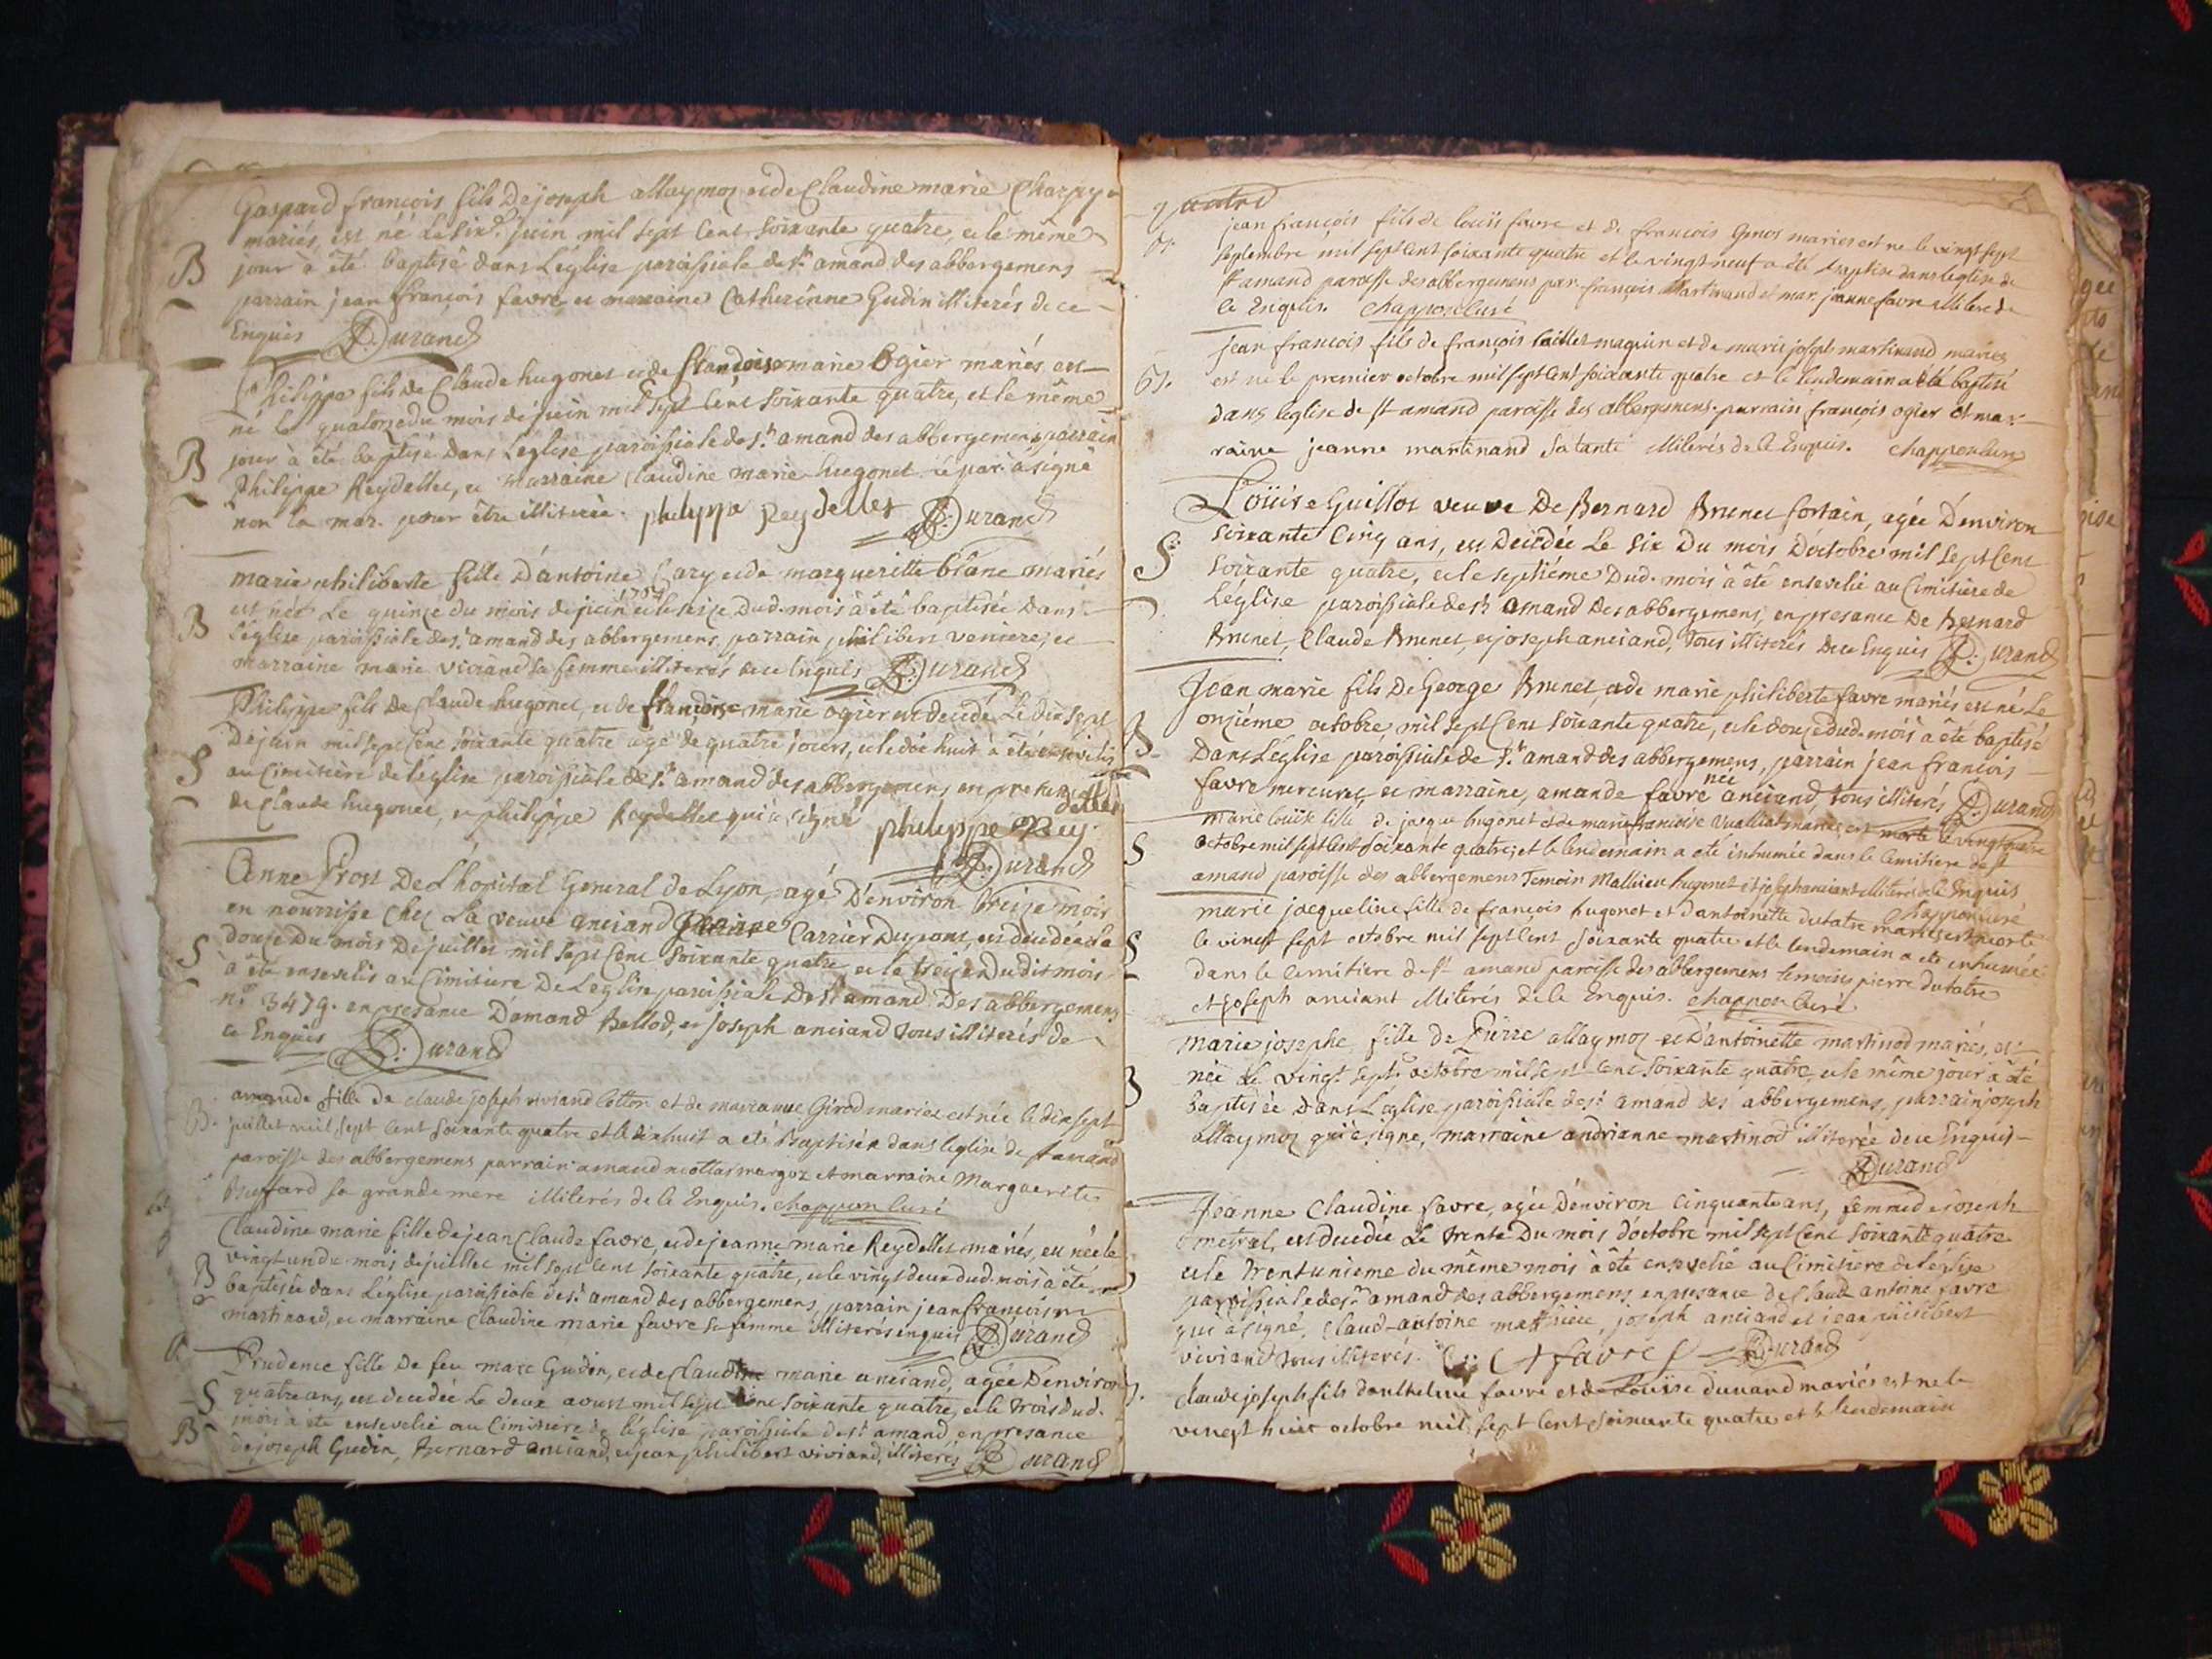 Gaspard françois fils De joseph allaymoz et de Claudine marie Charpy
mariés, est né Le six.e juin mil sept Cent soixante quatre, et le même
B jour à été baptisé dans L'église paroissiale de st amand des abbergemens
parrain jean françois favre et marraine Catherinne Gudin illiterés de ce
Enquis D: Durand
Philippe fils de Claude hugonet et de françoise marie Ogier mariés est
né le quatorze du mois de juin mil sept Cent soixante quatre, et le même
B jour à été baptisé Dans L'église paroissiale de st amand des abbergemens parrain
Philippe Reydellet, et marraine Claudine marie hugonet le par. à signé
non la mar. pour être illiterée. philippe Reydellet D: Durand
marie philiberte fille D'antoine Cary et de margueritte blanc mariés
1764
est née Le quinze du mois de juin et le seize Dud. mois à été baptisée Dans
B L'église paroissiale de st amand des abbergemens, parrain philibert et
marraine marie viviand sa femme illiterés de ce Enquis D: Durand
Philippe fils de Claude hugonet, et de françoise marie ogier est decedé Le dix sept
De juin mil sept Cent soixante quatre agé de quatre jours, et le dix huit à été enseveli
S au Cimitière de l'église paroissiale de st amand des abbergemens en presance
de Claude hugonet, et philippe Reydellet qui à signé philippe Reydellet
D: Durand
Anne Prost De L'hopital General de Lyon, agé D'environ treize mois
en nourrisse Chez La veuve anciand Carrier Dupont, est decedée le
douze Du mois De juillet mil sept Cent soixante quatre et le treize Dudit mois
S à été ensevelis au Cimitiere De L'eglise paroissiale De st amand Des abbergemens
n.o 3479. en presance D'amand Ballod, et joseph anciand tous illiterés de
ce Enquis D: Durand
amande fille de claude joseph viviand lotton et de marianne Girod mariez est née le dix sept
B. juillet mil sept cent soixante quatre et le dix huit a eté Baptisée dans leglise de st amand
paroisse des abbergemens parrain amand nicollas margoz et marraine Marguerite
Buffard sa grande mere illiterés de le Enquis. chappon curé
Claudine marie fille de jean Claude favre, et de jeanne marie Reydellet mariés, est née le
vingt un du mois de juillet mil sept Cent soixante quatre, et le vingt deux dud. mois à été
B baptisée dans L'église paroissiale de st amand des abbergemens, parrain jean françois
martinand, et marraine Claudine marie favre sa femme illiterés enquis D: Durand
Prudence fille De feu marc Gudin, et de Claudine marie anciand, agée D'environ
S quatre ans, est decedée Le deux aoust mil sept Cent soixante quatre, et le trois Dud.
mois à été ensevelie au Cimitiere de l'église paroissiale de st amand, en presance
B de joseph Gudin, Bernard anciand, et jean philibert viviand, illiterés D: Durand
quatre
jean françois fils de louis favre et de francois Genos mariés est ne le vingt sept
B. septembre mil sept cent soixante quatre et le vingt neuf a été baptisé dans leglise de
st amand paroisse des abbergemens par. françois Martinand et mar. jeanne favre illiterés de
le Enquis. chappon curé
jean françois fils de françois caillet maquin et de marie joseph martinand mariez
B. est né le premier octobre mil sept cent soixante quatre et le lendemain a été baptisé
dans leglise de st amand paroisse des abbergemens. parrain françois ogier et mar-
raine jeanne martinand sa tante illiterés de le Enquis. chappon curé
Loüise Guillot veuve De Bernard Brunet fortain, agée D'environ
soixante Cinq ans, est Decedée Le six Du mois D'octobre mil sept Cent
S soixante quatre, et le septiéme Dud. mois à été ensevelie au Cimitiere de
L'église paroissiale de st amand Des abbergemens, en presance De Bernard
Brunet, Claude Brunet, et joseph anciand, tous illiterés de ce Enquis D: Durand
Jean marie fils De George Brunet, et de marie philiberte favre mariés est né Le
onziéme octobre, mil sept Cent soixante quatre, et le douze dud. mois à été baptisé
B Dans L'église paroissiale de st amand des abbergemens, parrain jean françois
née
favre mercuret et marraine, amande favre anciand, tous illiterés D: Durand
marie louise fille de jacque hugonet et de marie francoise vuaillat mariez est morte le vingt quatre
S octobre mil sept cent soixante quatre, et le lendemain a ete inhumée dans le Cemitiere de st
amand paroisse des abbergemens Temoin Mathieu hugonet et joseph anciant illiterés de le Enquis
chappon curé
marie jacqueline fille de françois hugonet et d'antoinette dutatre mariés est morte
S le vingt sept octobre mil sept cent soixante quatre et le lendemain a eté inhumée
dans le Cemitiere de st amand paroisse des abbergemens temoins pierre dutatre
et joseph anciant illiterés de le Enquis. chappon curé
Marie josephe, fille de Pierre allaymoz et D'antoinette martinod mariés, est
née le vingt sept.e octobre mil sept cent soixante quatre, et le même jour à été
B baptisée Dans L'église paroissiale de st amand des abbergemens, parrain joseph
allaymoz qui à signé, marraine andrianne martinod illiterée de ce Enquis
D: Durand
Jeanne Claudine favre, agée D'environ Cinquante ans, femme de joseph
mestral, est decedée Le trente Du mois d'octobre mil sept Cent soixante quatre
et le trentunieme du même mois à été ensevelie au Cimitiere de l'église
paroissiale de st amand des abbergemens en presance de Claud antoine favre
qui à signé, Claud-antoine mathieu, joseph anciand et jean philibert
viviand tous illiterés. C A favre D: Durand
claude joseph fils danthelme favre et de Louise durand mariés est ne le
vingt huit octobre mil sept cent soixante quatre et le lendemain